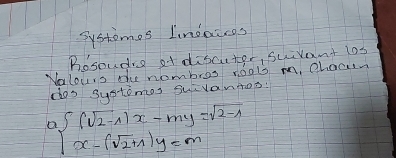 Systèmes linéaires
Résoudre et discuter, suivant les
Valeurs du nombres réels m, chacun
des systèmes suivantes:
a) { (√2-1)x - my = √2-1
x - (√2+1)y = m